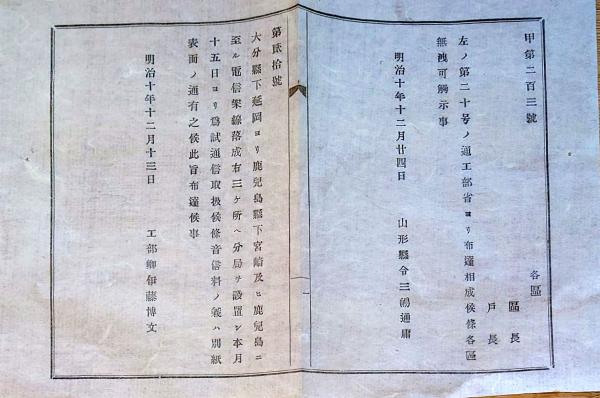 甲第二百三號
各區
區長
戶長
左ノ第二十号ノ通工部省ヨリ布達相成候條各區
無洩可觸示事
明治十年十二月廿四日
山形縣令三島通庸
第貳拾號
大分縣下延岡ヨリ鹿兒島縣下宮崎及ヒ鹿兒島ニ
至ル電信架線落成右三ケ所ヘ分局ヲ設置シ本月
十五日ヨリ爲試通信取扱候條音信料ノ義ハ別紙
表面ノ通有之候此旨布達候事
明治十年十二月十三日
工部卿伊藤博文